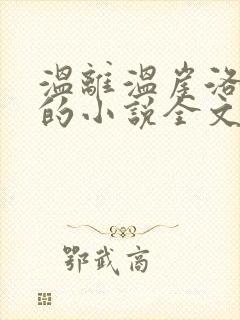 温離温崖洛
的小説全文
鄂武商